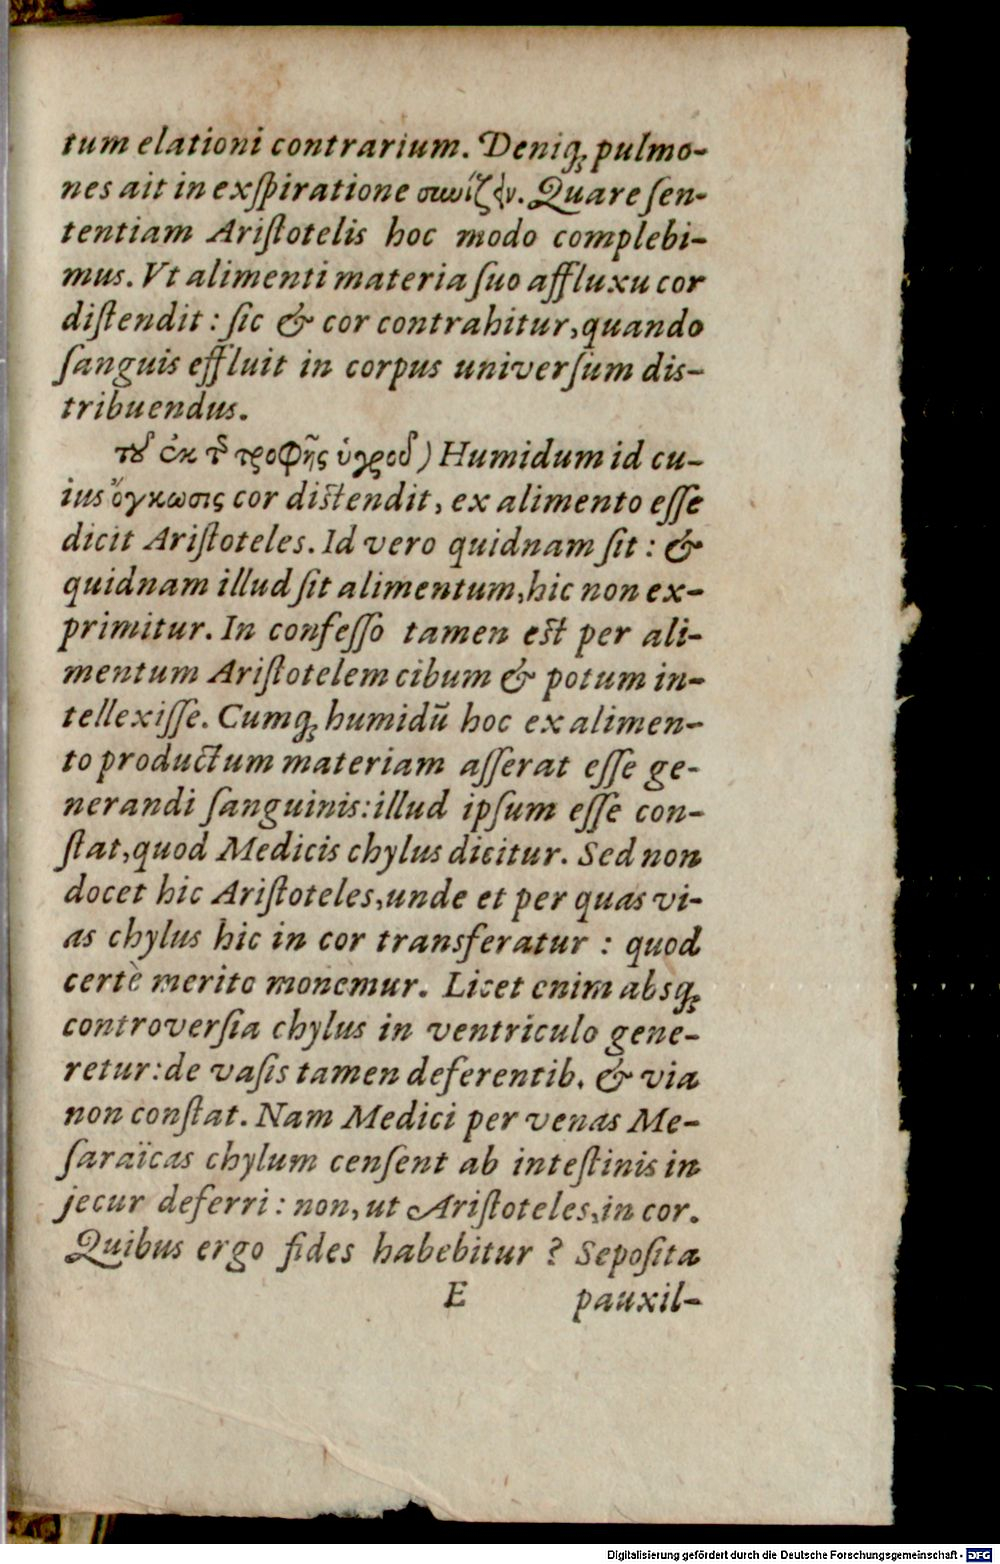 tum elationi contrarium. Deniq́; pulmo-
nes ait in exſpiratione συνίζειν. Quare ſen-
tentiam Ariſtotelis hoc modo complebi-
mus. Vt alimenti materia ſuo affluxu cor
diſtendit: ſic & cor contrahitur, quando
ſanguis effluit in corpus univerſum dis-
tribuendus.
τοῦ ἐκ τῆς τροφῆς ὑγροῦ) Humidum id cu-
ius ὄγκωσις cor diſtendit, ex alimento eſſe
dicit Ariſtoteles. Id vero quidnam ſit: &
quidnam illud ſit alimentum, hic non ex-
primitur. In confeſſo tamen eſt per ali-
mentum Ariſtotelem cibum & potum in-
tellexiſſe. Cumq́; humidū hoc ex alimen-
to productum materiam aſſerat eſſe ge-
nerandi ſanguinis: illud ipſum eſſe con-
ſtat, quod Medicis chylus dicitur. Sed non
docet hic Ariſtoteles, unde et per quas vi-
as chylus hic in cor transferatur: quod
certè merito monemur. Licet enim absq́;
controverſia chylus in ventriculo gene-
retur: de vaſis tamen deferentib. & via
non conſtat. Nam Medici per venas Me-
ſaraïcas chylum cenſent ab inteſtinis in
jecur deferri: non, ut Ariſtoteles, in cor.
Quibus ergo fides habebitur? Sepoſita
E pauxil-
Digitalisierung gefördert durch die Deutsche Forschungsgemeinschaft - DFG